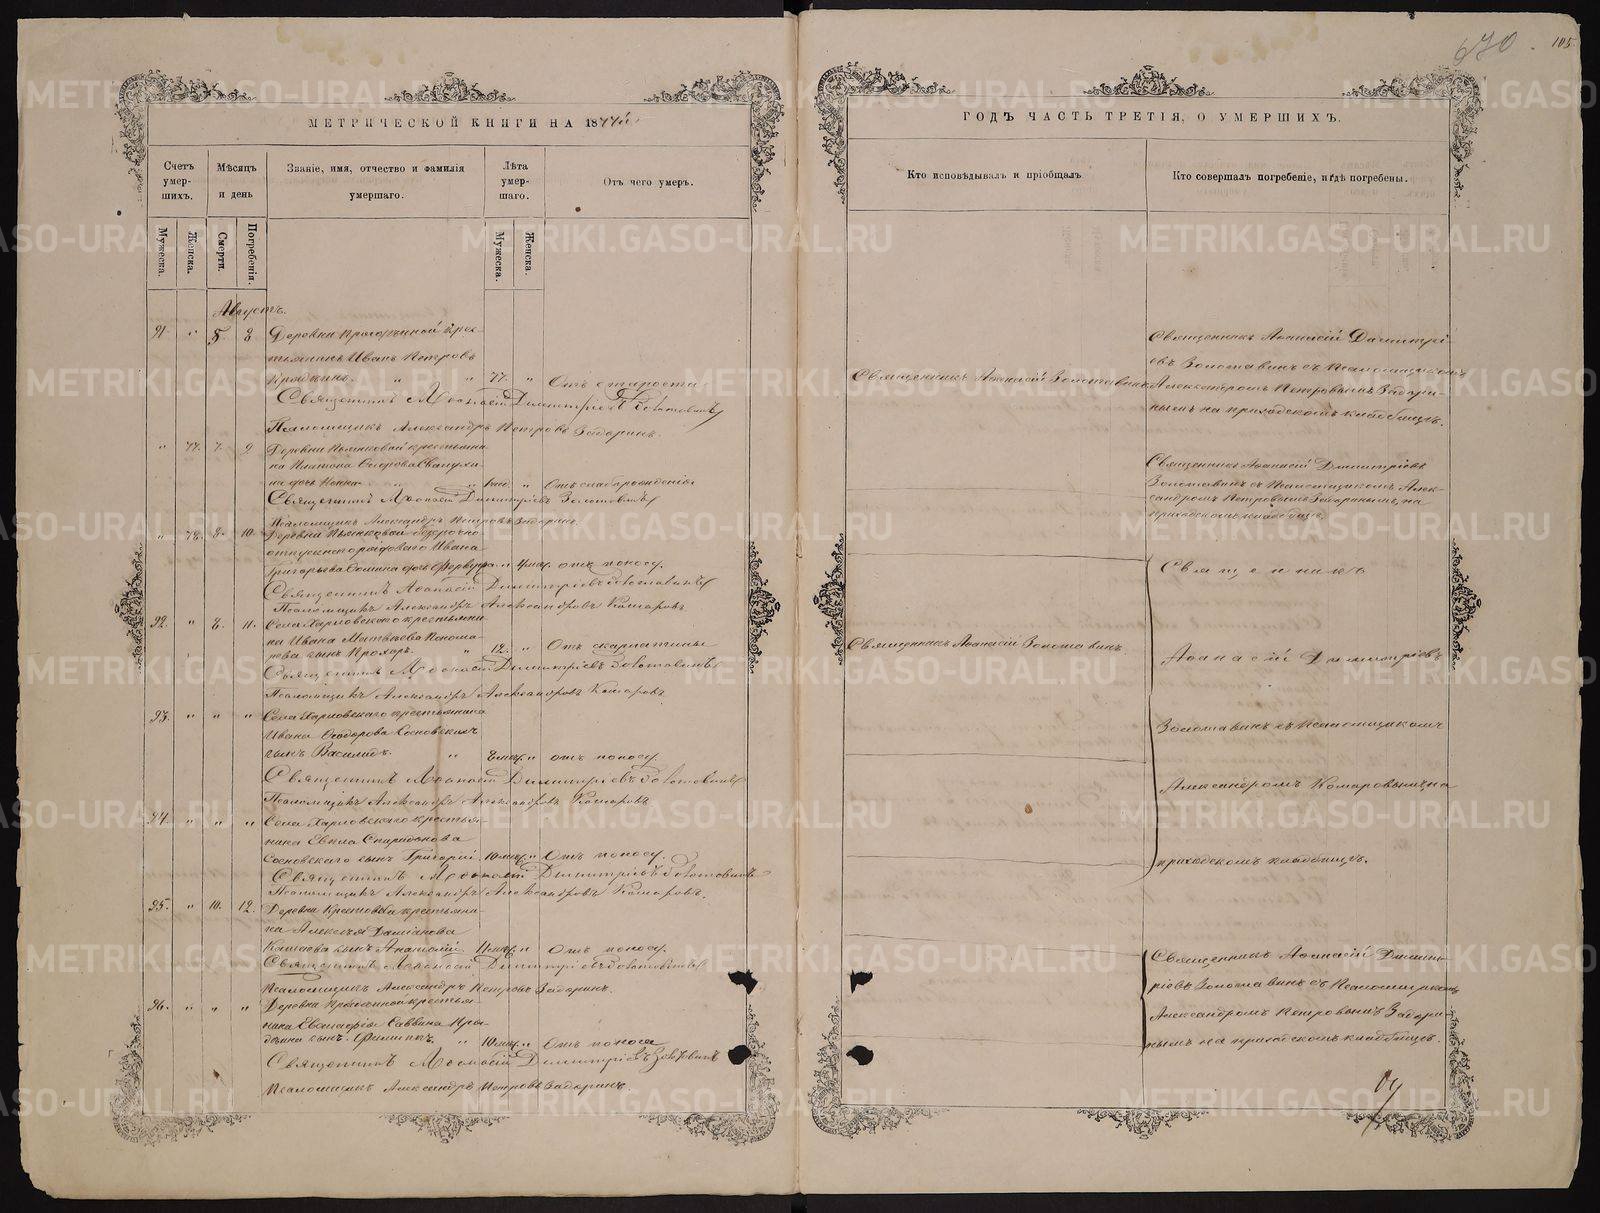 670.
105.
МЕТРИЧЕСКОЙ КНИГИ НА 1877й
Счетъ умер-шихъ.
Мѣсяцъ и день
Званіе, имя, отчество и фамилія умершаго.
Лѣта умер-шаго.
Отъ чего умеръ.
Мужеска.
Женска.
Смерти.
Погребенія.
Мужеска.
Женска.
Августъ.
91. " 5. 8
Деревни крес-
тьянинъ Иванъ Петровъ
" " 77. " Отъ старости
Священникъ Аѳанасій Димитріевъ Золотавинъ
Псаломщикъ Александръ Петровъ Задоринъ.
" 77. 7. 9
Деревни крестьяни-
на Платона
" " Отъ слаборожденія
Священникъ Аѳанасій Димитріевъ Золотавинъ
Псаломщикъ Александръ Петровъ Задоринъ.
" 78. 8. 10.
Деревни безсрочно
отпускнаго рядоваго Ивана
Григорьева дочь " 4 мѣс. отъ поносу.
Священникъ Аѳанасій Димитріевъ Золотавинъ
Псаломщикъ Александръ Александровъ Комаровъ
92. " 8. 11.
Села Харловскаго крестьяни-
на Ивана Матвѣева Понома-
рева сынъ Прохоръ. " 12. " Отъ скарлатины
Священникъ Аѳанасій Димитріевъ Золотавинъ
Псаломщикъ Александръ Александровъ Комаровъ
93. " " "
Села Харловскаго крестьянина
Ивана Ѳеодорова Сосновскихъ
сынъ Василидъ. " 8 мѣс. " отъ поносу.
Священникъ Аѳанасій Димитріевъ Золотавинъ
Псаломщикъ Александръ Александровъ Комаровъ
94. " " "
Села Харловскаго крестья-
нина Евпла Спиридонова
Сосновскаго сынъ Григорій. 10 мѣс. " Отъ поносу.
Священникъ Аѳанасій Димитріевъ Золотавинъ
Псаломщикъ Александръ Александровъ Комаровъ.
95. " 10. 12.
Деревни крестьяни-
на Алексѣя Даміанова
сынъ Анатолій. 11 мѣс. " Отъ поносу.
Священникъ Аѳанасій Димитріевъ Золотавинъ
Псаломщикъ Александръ Петровъ Задоринъ.
96. " " "
Деревни крестья-
нина Саввина
сынъ Филиппъ. " 10 мѣс. " Отъ поноса
Священникъ Аѳанасій Димитріевъ Золотавинъ
Псаломщикъ Александръ Петровъ Задоринъ.
ГОДЪ ЧАСТЬ ТРЕТІЯ, О УМЕРШИХЪ.
Кто исповѣдывалъ и пріобщалъ
Кто совершалъ погребеніе, и гдѣ погребены.
Священникъ Аѳанасій Золотавинъ
Священникъ Аѳанасій Димитрі-
евъ Золотавинъ съ Псаломщикомъ
Александромъ Петровымъ Задори-
нымъ на приходскомъ кладбищѣ.
Священникъ Аѳанасій Димитріевъ
Золотавинъ съ Псаломщикомъ Алек-
сандромъ Петровымъ Задоринымъ, на
приходскомъ кладбищѣ.
Священникъ Аѳанасій Золотавинъ.
Священникъ
Аѳанасій Димитріевъ
Золотавинъ съ Псаломщикомъ
Александромъ Комаровымъ, на
приходскомъ кладбищѣ.
Священникъ Аѳанасій Димит-
ріевъ Золотавинъ съ Псаломщикомъ
Александромъ Петровымъ Задори
нымъ на приходскомъ кладбищѣ.
METRIKI.GASO-URAL.RU